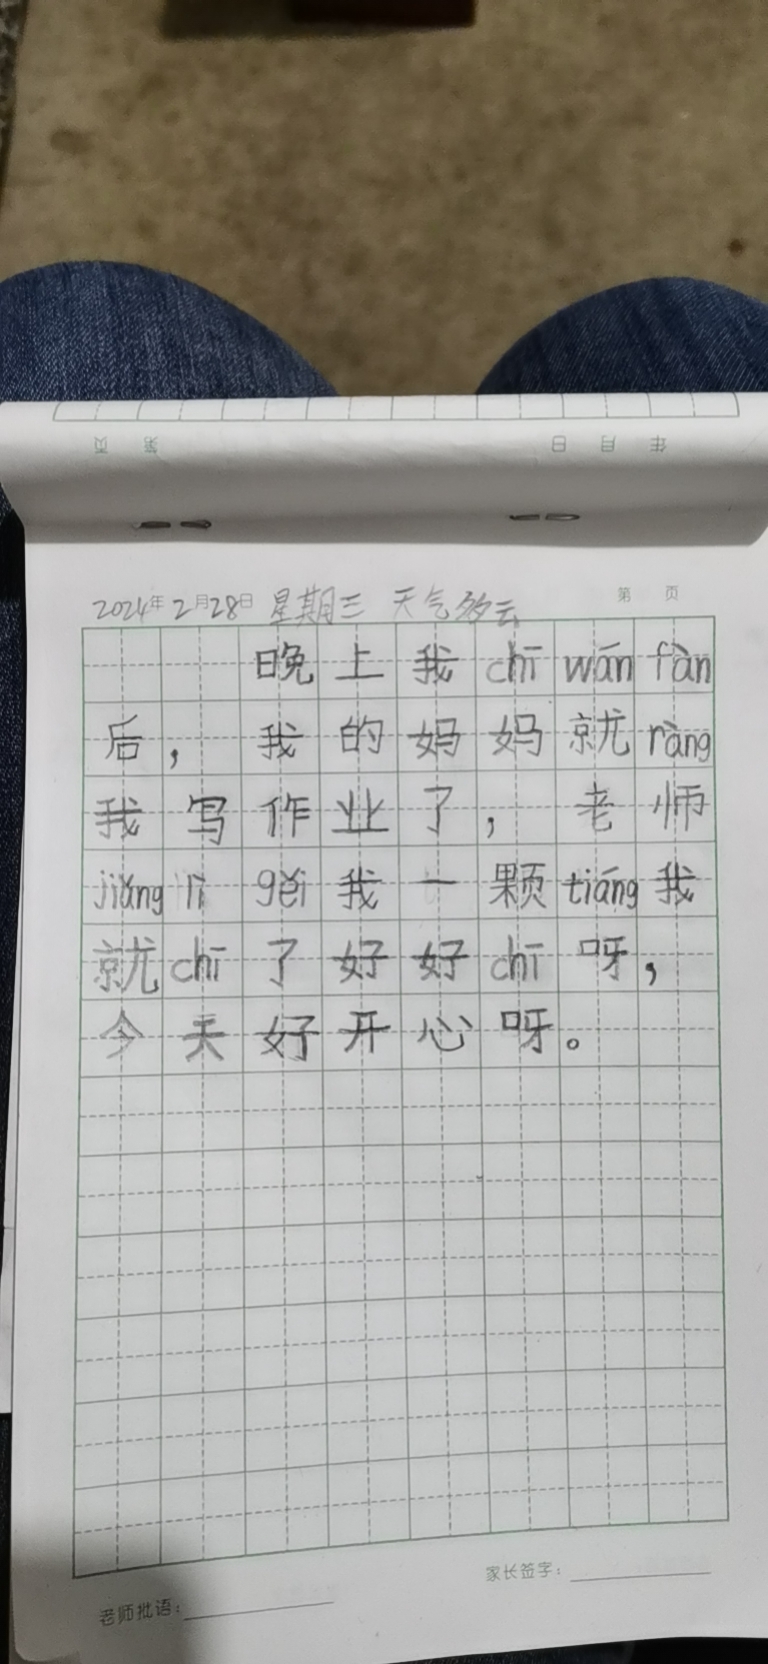 年 月 日 第 页
2024年2月28日 星期三 天气多云 第 页
晚上我chī wán fàn
后，我的妈妈就ràng
我写作业了，老师
jiǎng lì gěi我一颗tiáng我
就chī了好好chī呀，
今天好开心呀。
家长签字：
老师批语：